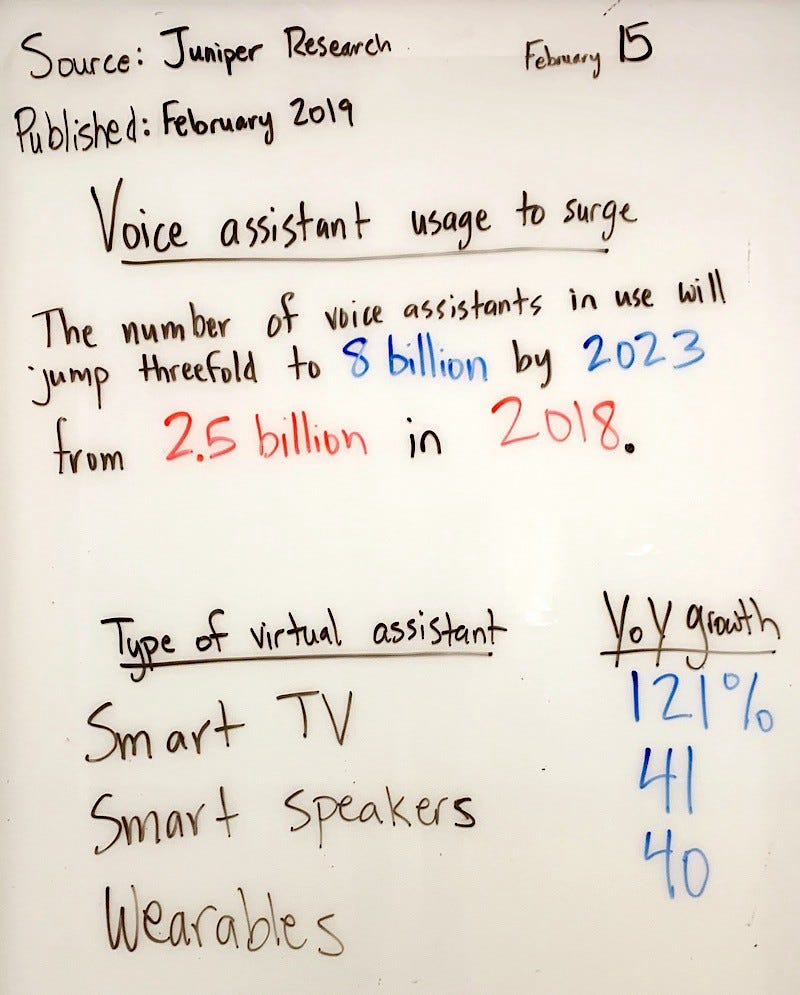 Source: Juniper Research
February 15
Published: February 2019
Voice assistant usage to surge
The number of voice assistants in use will
jump threefold to 8 billion by 2023
from 2.5 billion in 2018.
Type of virtual assistant YoY growth
Smart TV 121%
Smart speakers 41
Wearables 40